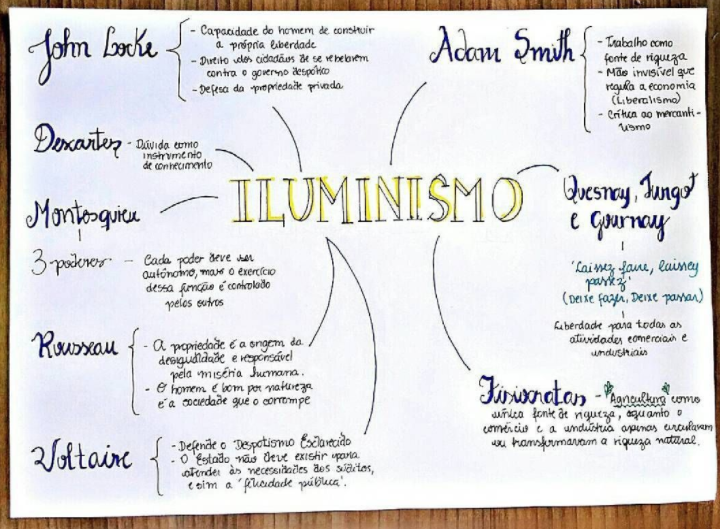 John Locke
- Capacidade do homem de construir
a própria liberdade
- Direito dos cidadãos de se rebelarem
contra o governo despótico
- Defesa da propriedade privada
Adam Smith
- Trabalho como
fonte de riqueza
- Mão invisível que
regula a economia
(Liberalismo)
- Crítica ao mercanti-
lismo
Descartes
- Dúvida como
instrumento
de conhecimento
ILUMINISMO
Montesquieu
3 poderes
- Cada poder deve ser
autônomo, mas o exercício
dessa função é controlado
pelos outros
Quesnay, Turgot
e Gournay
"Laissez faire, laissez
passez"
(Deixe fazer, Deixe passar)
Liberdade para todas as
atividades comerciais e
industriais
Rousseau
- A propriedade é a origem da
desigualdade e responsável
pela miséria humana.
- O homem é bom por natureza
e a sociedade que o corrompe
Fisiocratas
- Agricultura como
única fonte de riqueza, enquanto o
comércio e a indústria apenas circulavam
ou transformavam a riqueza natural.
Voltaire
- Defende o Despotismo Esclarecido
- O Estado não deve existir para
atender às necessidades dos súditos,
e sim a 'felicidade pública'.